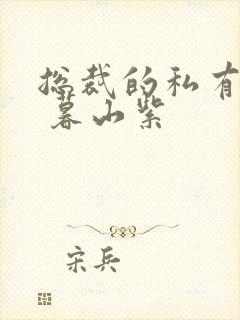 总裁的私有
暮山紫
宋兵